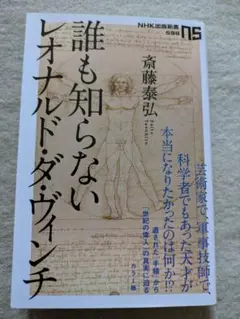 NHK出版新書
698
誰も知らない
レオナルド・ダ・ヴィンチ
斎藤泰弘
Saito Yasuhiro
芸術家で、軍事技師で、
科学者でもあった天才が
本当になりたかったのは何か!?
遺された「手稿」から
「世紀の偉人」の真実に迫る
カラー版